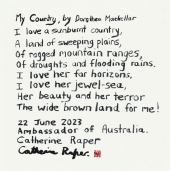 My Country, by Dorothea Mackellar
I love a sunburnt country,
A land of sweeping plains,
Of rugged mountain ranges,
Of droughts and flooding rains.
I love her far horizons,
I love her jewel-sea,
Her beauty and her terror
The wide brown land for me!
22 June 2023
Ambassador of Australia.
Catherine Raper
Catherine Raper.